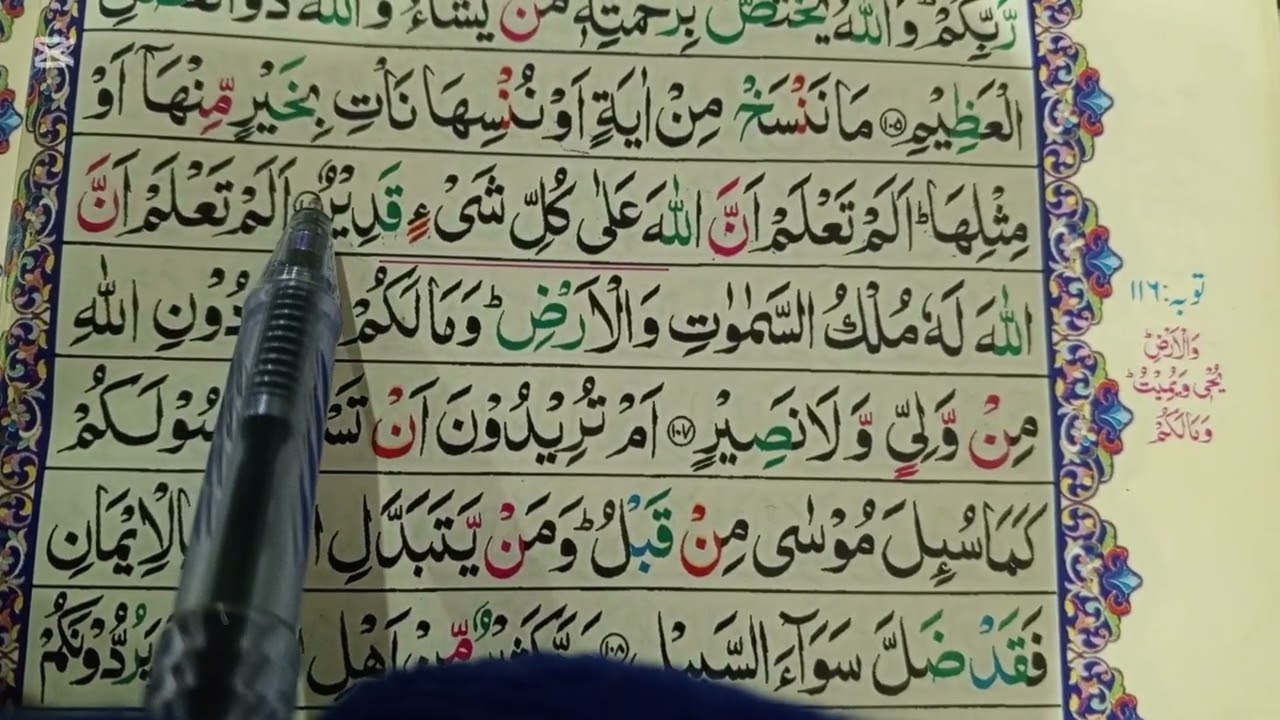 رَّبِّكُمْ ؕ وَاللّٰهُ يَخْتَصُّ بِرَحْمَتِهٖ مَنْ يَّشَآءُ ؕ وَاللّٰهُ ذُو الْفَضْلِ
الْعَظِيْمِ ۝۱۰۵ مَا نَنْسَخْ مِنْ اٰيَةٍ اَوْ نُنْسِهَا نَاْتِ بِخَيْرٍ مِّنْهَاۤ اَوْ
مِثْلِهَا ؕ اَلَمْ تَعْلَمْ اَنَّ اللّٰهَ عَلٰى كُلِّ شَیْءٍ قَدِيْرٌ اَلَمْ تَعْلَمْ اَنَّ
اللّٰهَ لَهٗ مُلْكُ السَّمٰوٰتِ وَالْاَرْضِ ؕ وَمَا لَكُمْ دُوْنِ اللّٰهِ
مِنْ وَّلِیٍّ وَّلَا نَصِيْرٍ ۝۱۰۷ اَمْ تُرِيْدُوْنَ اَنْ رَسُوْلَكُمْ
كَمَا سُىِٕلَ مُوْسٰى مِنْ قَبْلُ ؕ وَمَنْ يَّتَبَدَّلِ بِالْاِيْمَانِ
فَقَدْ ضَلَّ سَوَآءَ السَّبِيْلِ ۝۱۰۸ وَدَّ كَثِيْرٌ مِّنْ اَهْلِ يَرُدُّوْنَكُمْ
توبه: ۱۱٦
وَالْاَرْضِ ؕ
يُحْیٖ وَيُمِيْتُ ؕ
وَمَا لَكُمْ